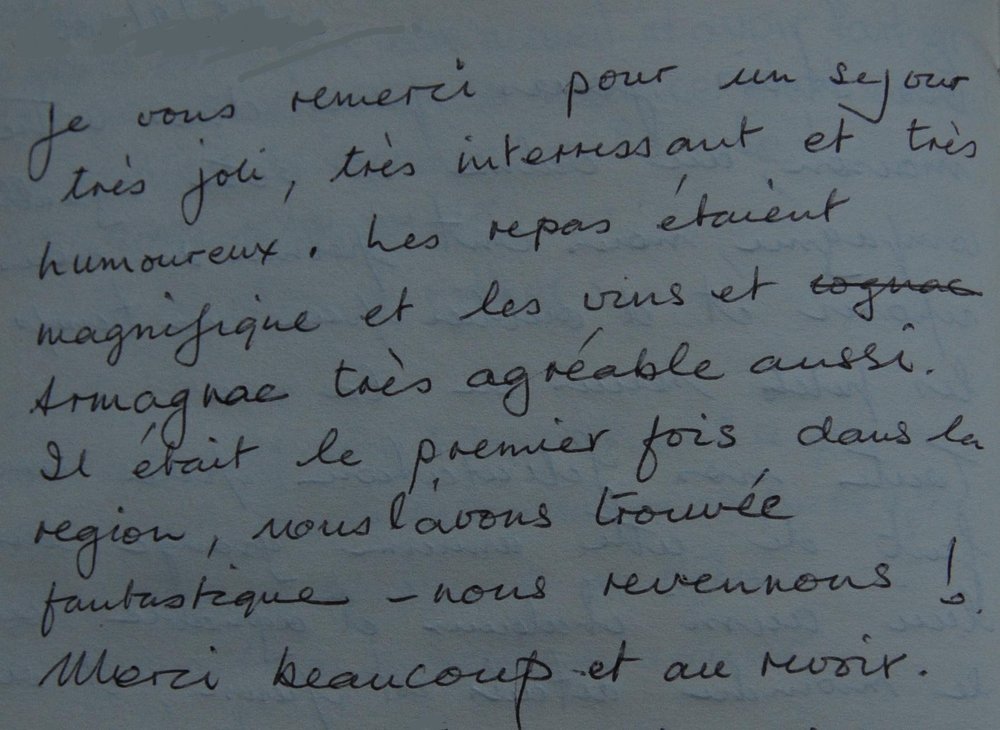 Je vous remerci pour un sejour
très joli, très interressant et très
humoureux. Les repas étaient
magnifique et les vins et cognac
Armagnac très agréable aussi.
Il était le premier fois dans la
region, nous l'avons trouvée
fantastique - nous revennons !
Merci beaucoup et au revoir.